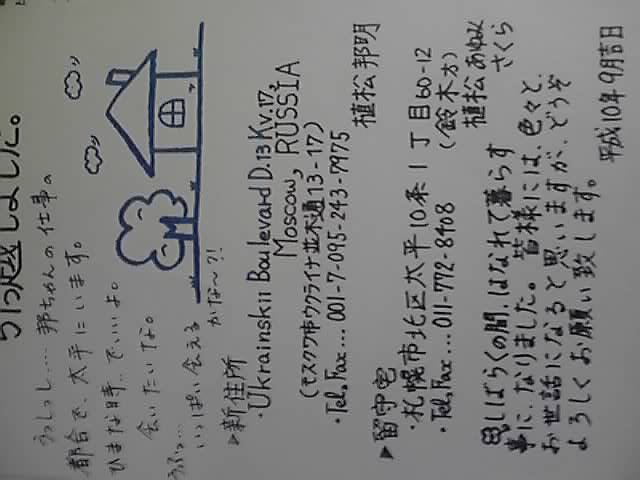 引っ越しました。
うっしっし… 邦ちゃんの仕事の
都合で、太平にいます。
ひまな時…でいいよ。
会いたいな。
うふっ…
いっぱい会える
かな〜?!
▶新住所
・Ukrainskii Boulevard D.13 Kv.17,
Moscow, RUSSIA
(モスクワ市ウクライナ並木通13-17)
・Tel. Fax... 001-7-095-243-7975
植松邦明
▶留守宅
・札幌市北区太平10条1丁目60-12
・Tel. Fax... 011-772-8408 (鈴木方)
植松あゆみ
さくら
しばらくの間、はなれて暮らす
事になりました。皆様には、色々と、
お世話になると思いますが、どうぞ
よろしくお願い致します。
平成10年9月吉日